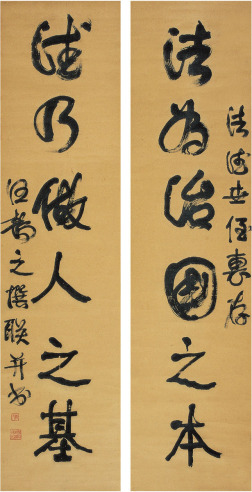 法德世侄惠存
法为治国之本
德乃做人之基
汪莺之撰联并书